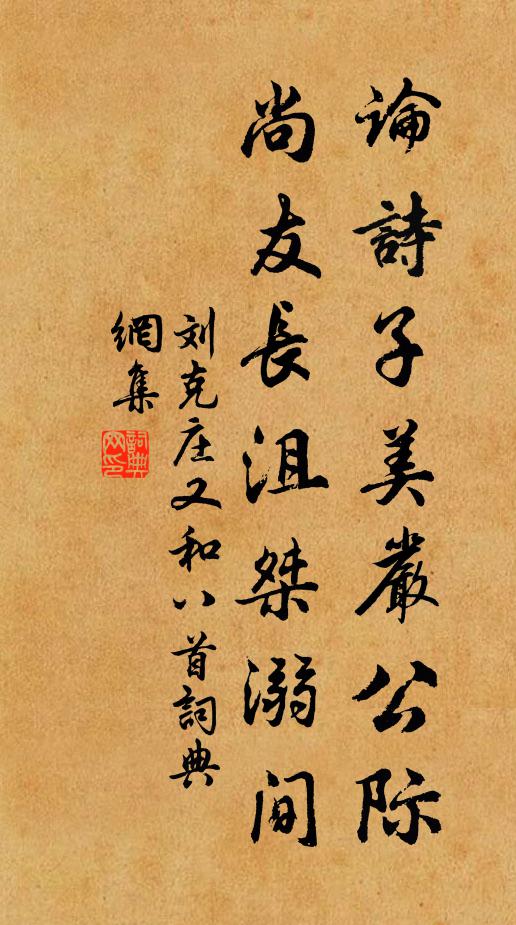 論詩子美嚴公际
尚友長沮桀溺间
刘克庄又和八首詞典
網集
詞典
网印